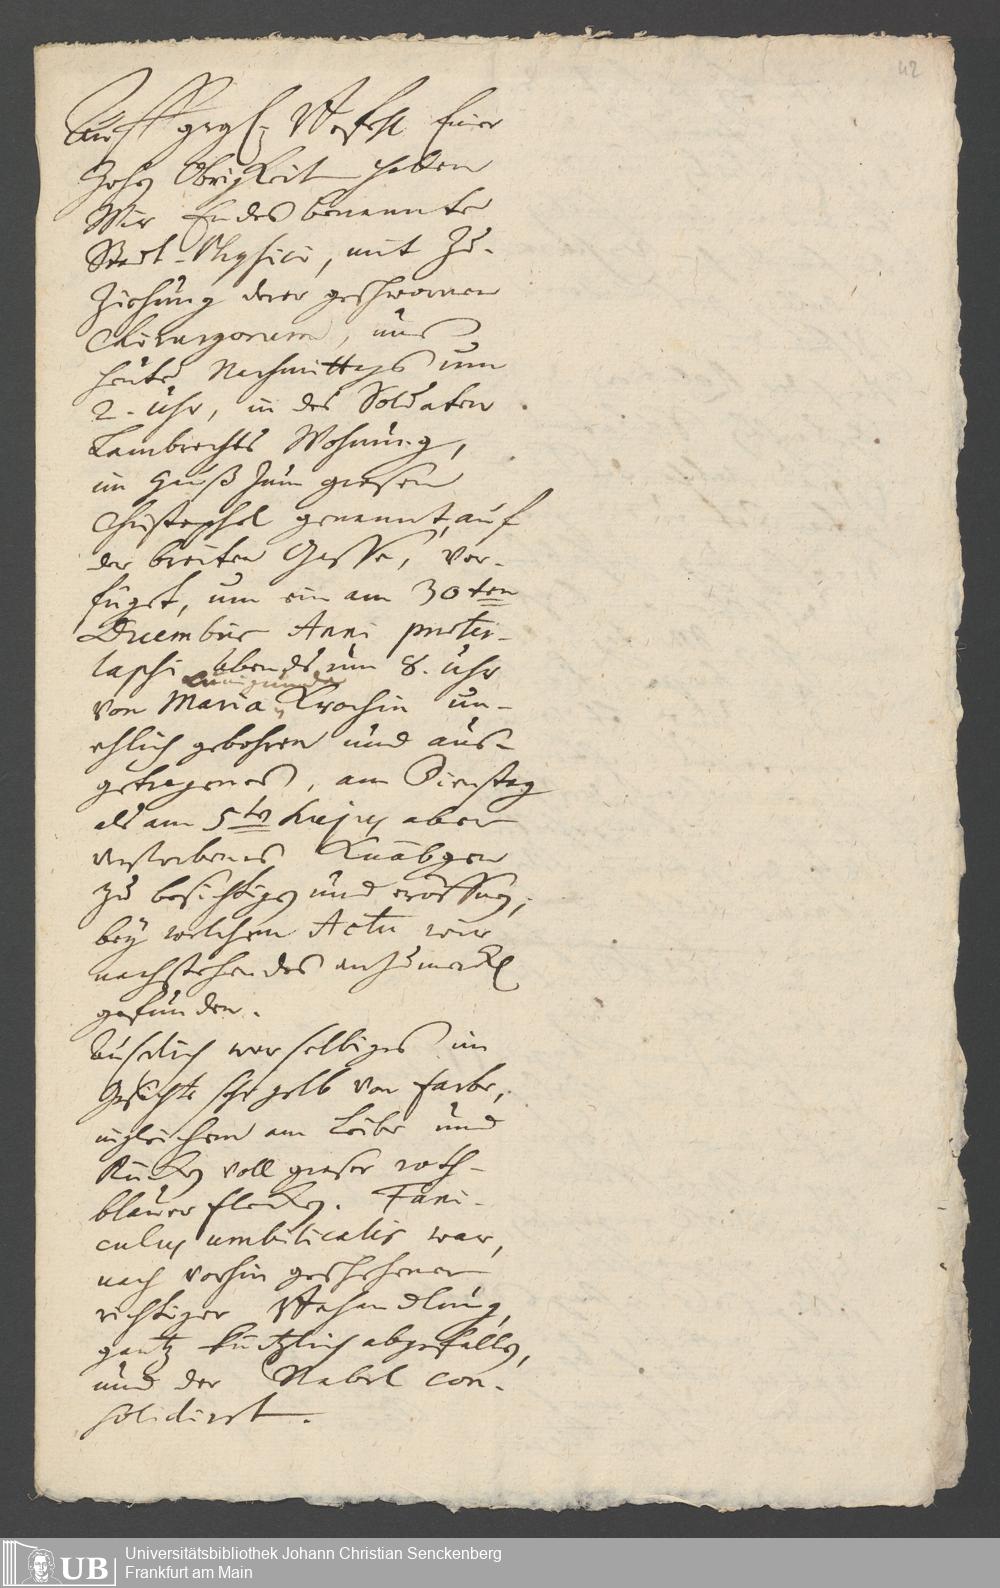 42
Auff Befehl Einer
Hohen Obrigkeit haben
Wir Endes benannte
Stadt-Physici, mit Zu-
Ziehung derer geschwornen
Chirurgorum, uns
heute Nachmittags um
2. Uhr, in des Soldaten
Lambrechts Wohnung,
im Hauß zum grosen
Christophel genannt, auf
der breiten Gasse, ver-
füget, um ein am 30ten
Decembris Anni præter-
lapsi abends um 8. Uhr
Cunigunda
von Maria Krochin un-
ehlich gebohren und aus-
getragenes, am Dienstag
als am 5ten hujus aber
verstorbenes Knäbgen
zu besichtigen und eröffnen,
bey welchem Actu wir
nachstehendes anzumercken
gefunden.
Äuserlich war selbiges im
Gesichte sehr gelb von Farbe,
ingleichem am Leibe und
Rücken voll groser roth-
blauer Flecken. Funi-
culus umbilicalis war,
nach vorhin geschehener
richtiger Behandlung,
gantz kürtzlich abgefallen,
und der Nabel con-
solidirt.
UB
Universitätsbibliothek Johann Christian Senckenberg
Frankfurt am Main